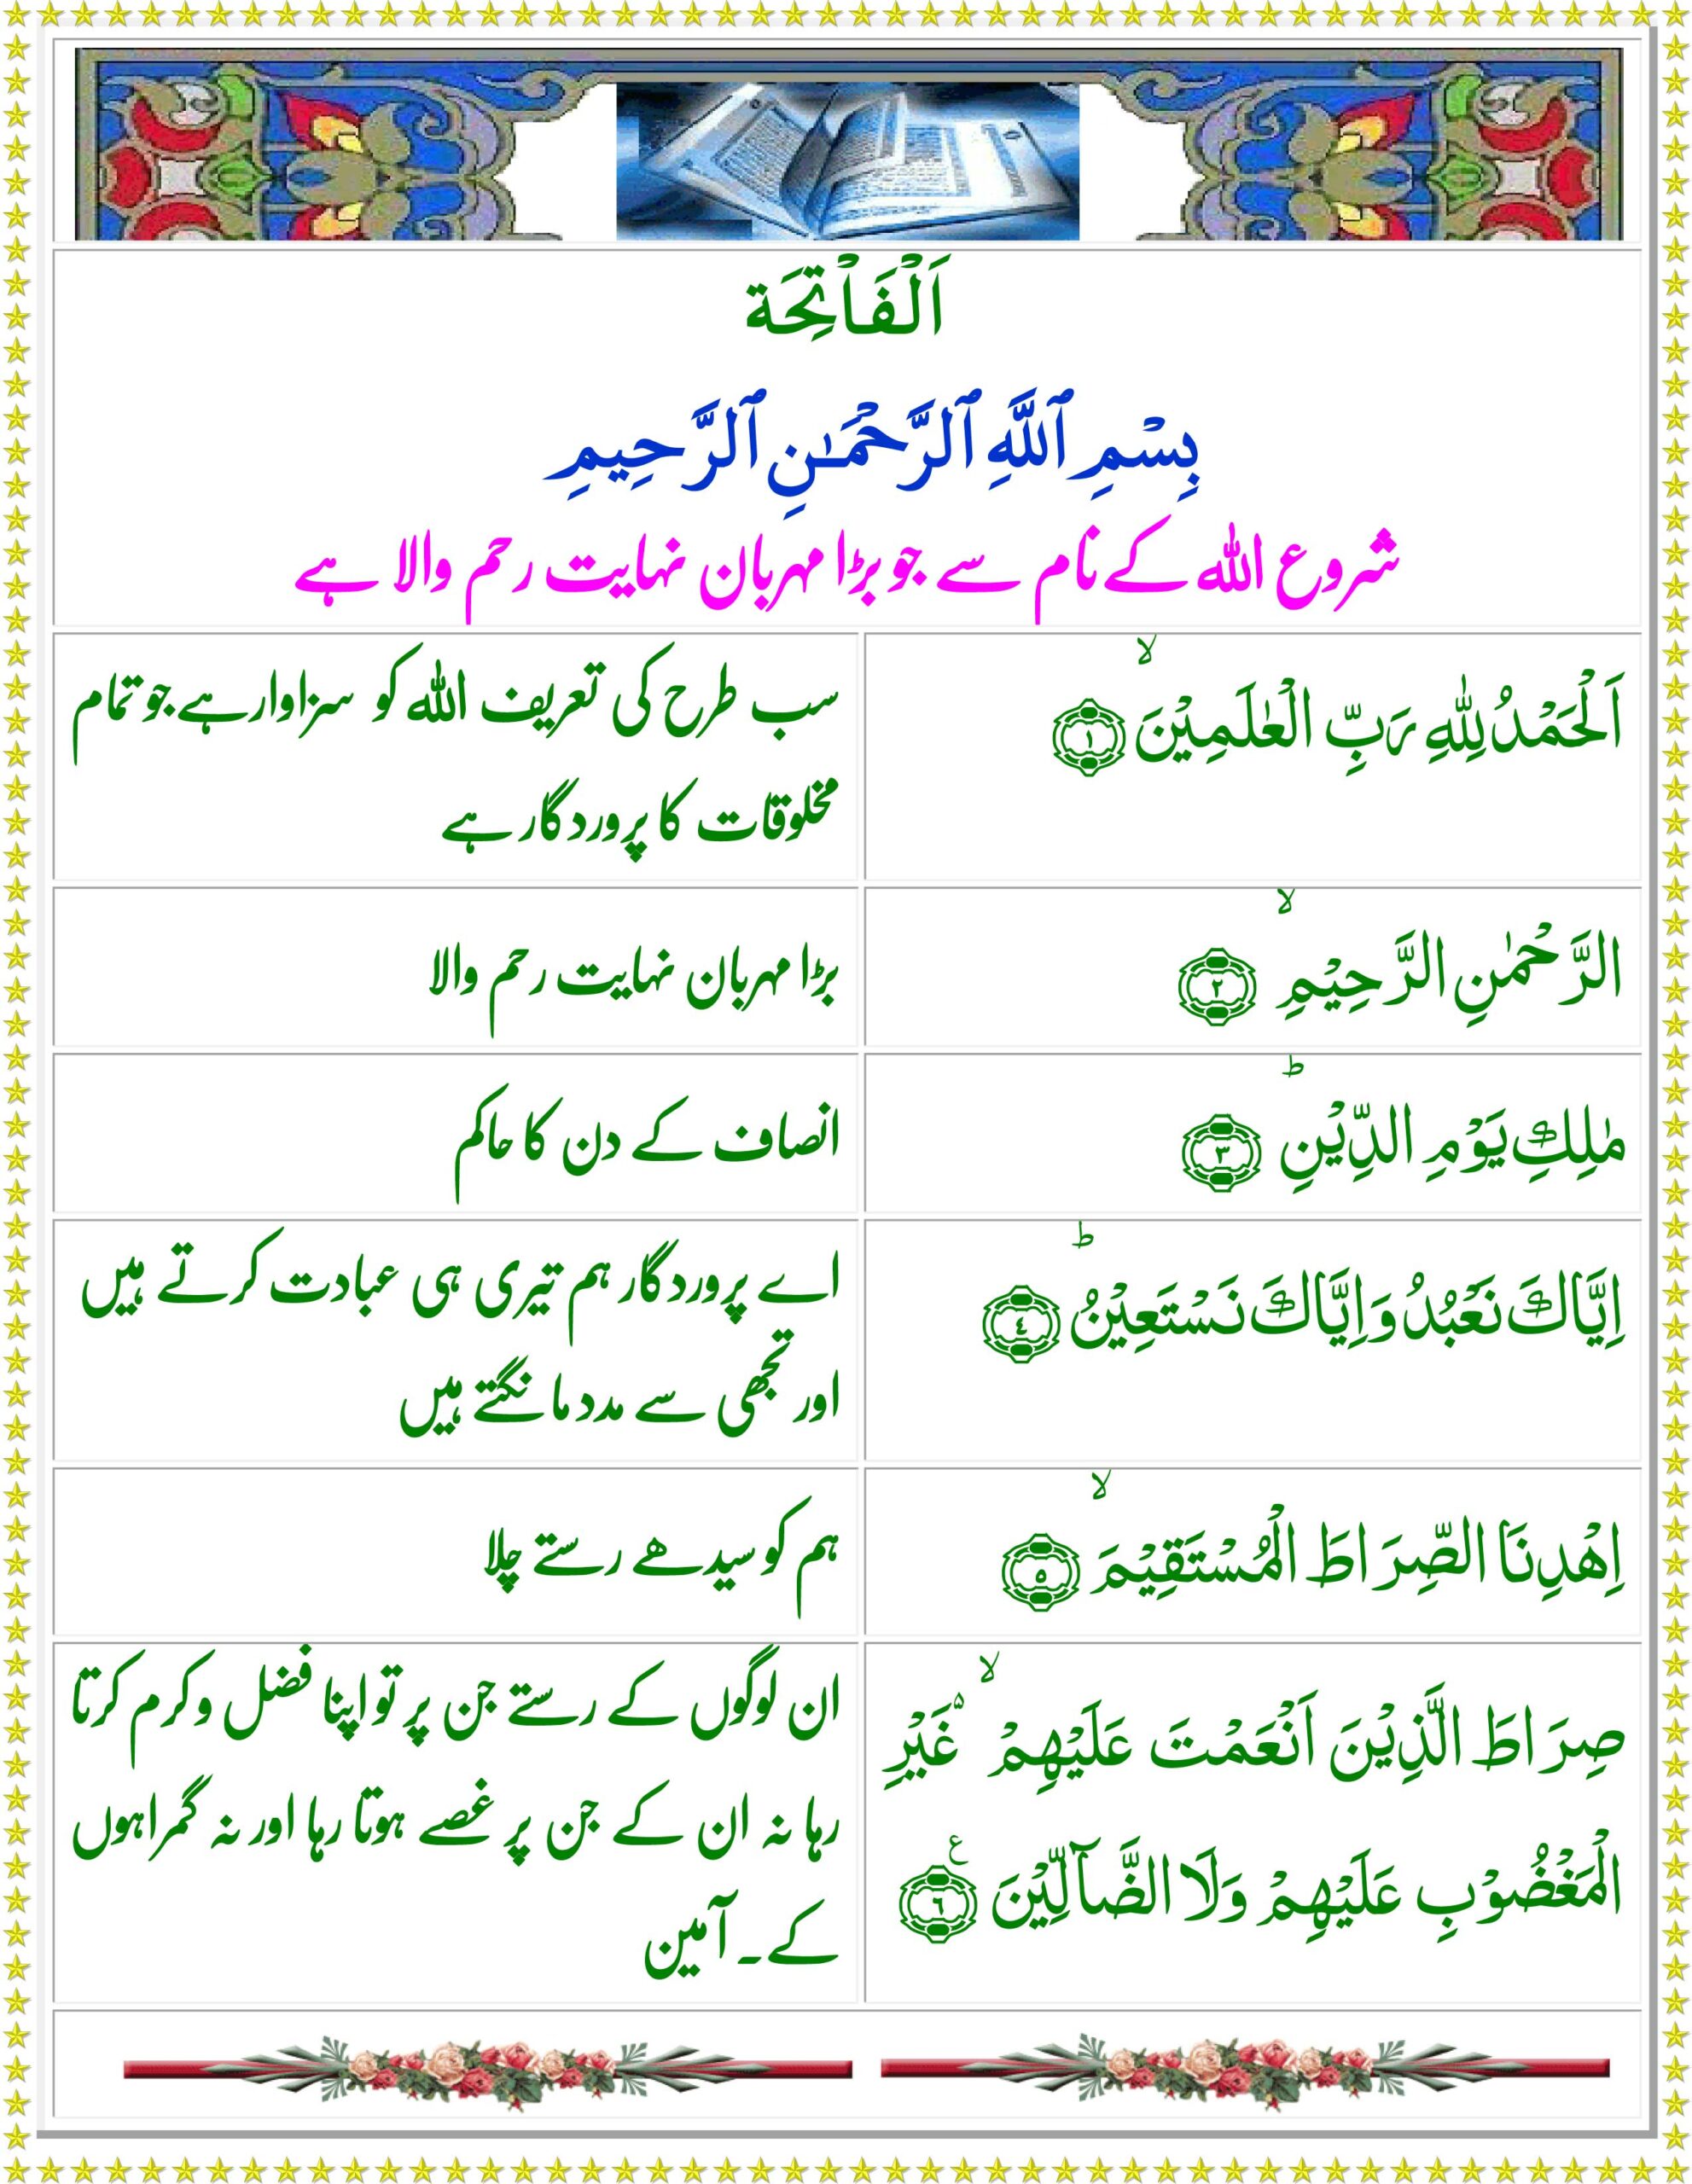 اَلْفَاْتِحَة
بِسْمِ ٱللَّهِ ٱلرَّحْمَـٰنِ ٱلرَّحِيمِ
شروع اللہ کے نام سے جو بڑا مہربان نہایت رحم والا ہے
اَلْحَمْدُ لِلّٰهِ رَبِّ الْعٰلَمِيْنَ ۙ ۝۱
سب طرح کی تعریف اللہ کو سزاوار ہے جو تمام
مخلوقات کا پروردگار ہے
الرَّحْمٰنِ الرَّحِيْمِ ۙ ۝۲
بڑا مہربان نہایت رحم والا
مٰلِكِ يَوْمِ الدِّيْنِ ؕ ۝۳
انصاف کے دن کا حاکم
اِيَّاكَ نَعْبُدُ وَاِيَّاكَ نَسْتَعِيْنُ ؕ ۝٤
اے پروردگار ہم تیری ہی عبادت کرتے ہیں
اور تجھی سے مدد مانگتے ہیں
اِهْدِنَا الصِّرَاطَ الْمُسْتَقِيْمَ ۙ ۝۵
ہم کو سیدھے رستے چلا
صِرَاطَ الَّذِيْنَ اَنْعَمْتَ عَلَيْهِمْ ۙ ۵ غَيْرِ
الْمَغْضُوْبِ عَلَيْهِمْ وَلَا الضَّآلِّيْنَ ۝٦ ع
ان لوگوں کے رستے جن پر تو اپنا فضل و کرم کرتا
رہا نہ ان کے جن پر غصے ہوتا رہا اور نہ گمراہوں
کے۔ آمین